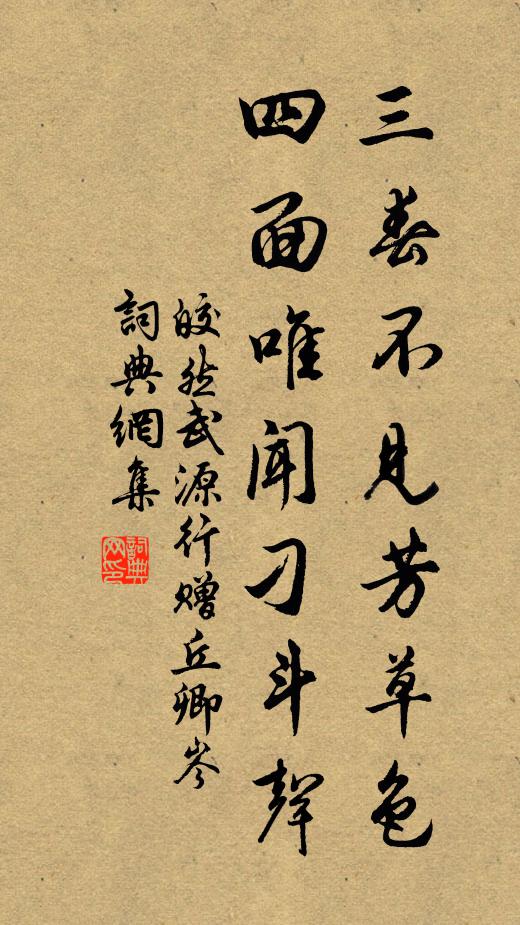 三春不见芳草色
四面唯闻刁斗声
皎然武源行赠丘卿岑
詞典網集
詞典
网印